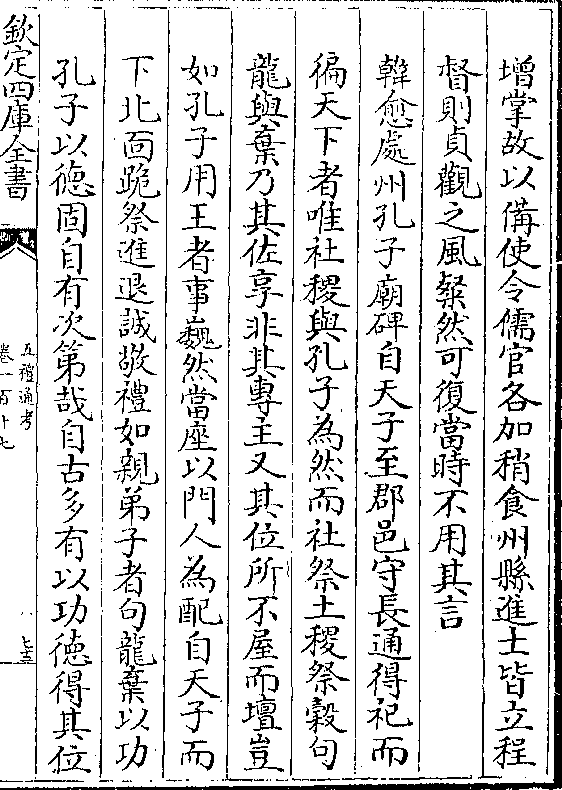 增掌故以備使令儒官各加稍食州縣進士皆立程
督則貞觀之風粲然可復當時不用其言
韓愈處州孔子廟碑自天子至郡邑守長通得祀而
徧天下者唯社稷與孔子為然而社祭土稷祭穀句
龍與棄乃其佐享非其專主又其位所不屋而壇豈
如孔子用王者事巍然當座以門人為配自天子而
下北面跪祭進退誠敬禮如親弟子者句龍棄以功
孔子以德固自有次第哉自古多有以功德得其位
欽定四庫全書
五禮通考
卷一百十七